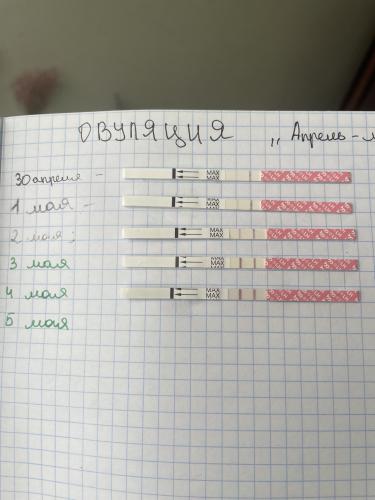 ОВУЛЯЦИЯ „Апрель-м
30 апреля - MAX MAX
1 мая - MAX MAX
2 мая; MAX MAX
3 мая MAX MAX
4 мая MAX MAX
5 мая